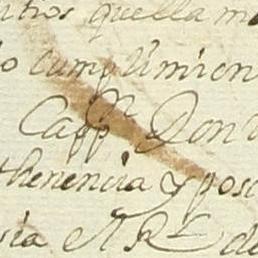 ntios quella ma
o cumplimien
Capp.n Don
thenencia y pose
sta el R.l de